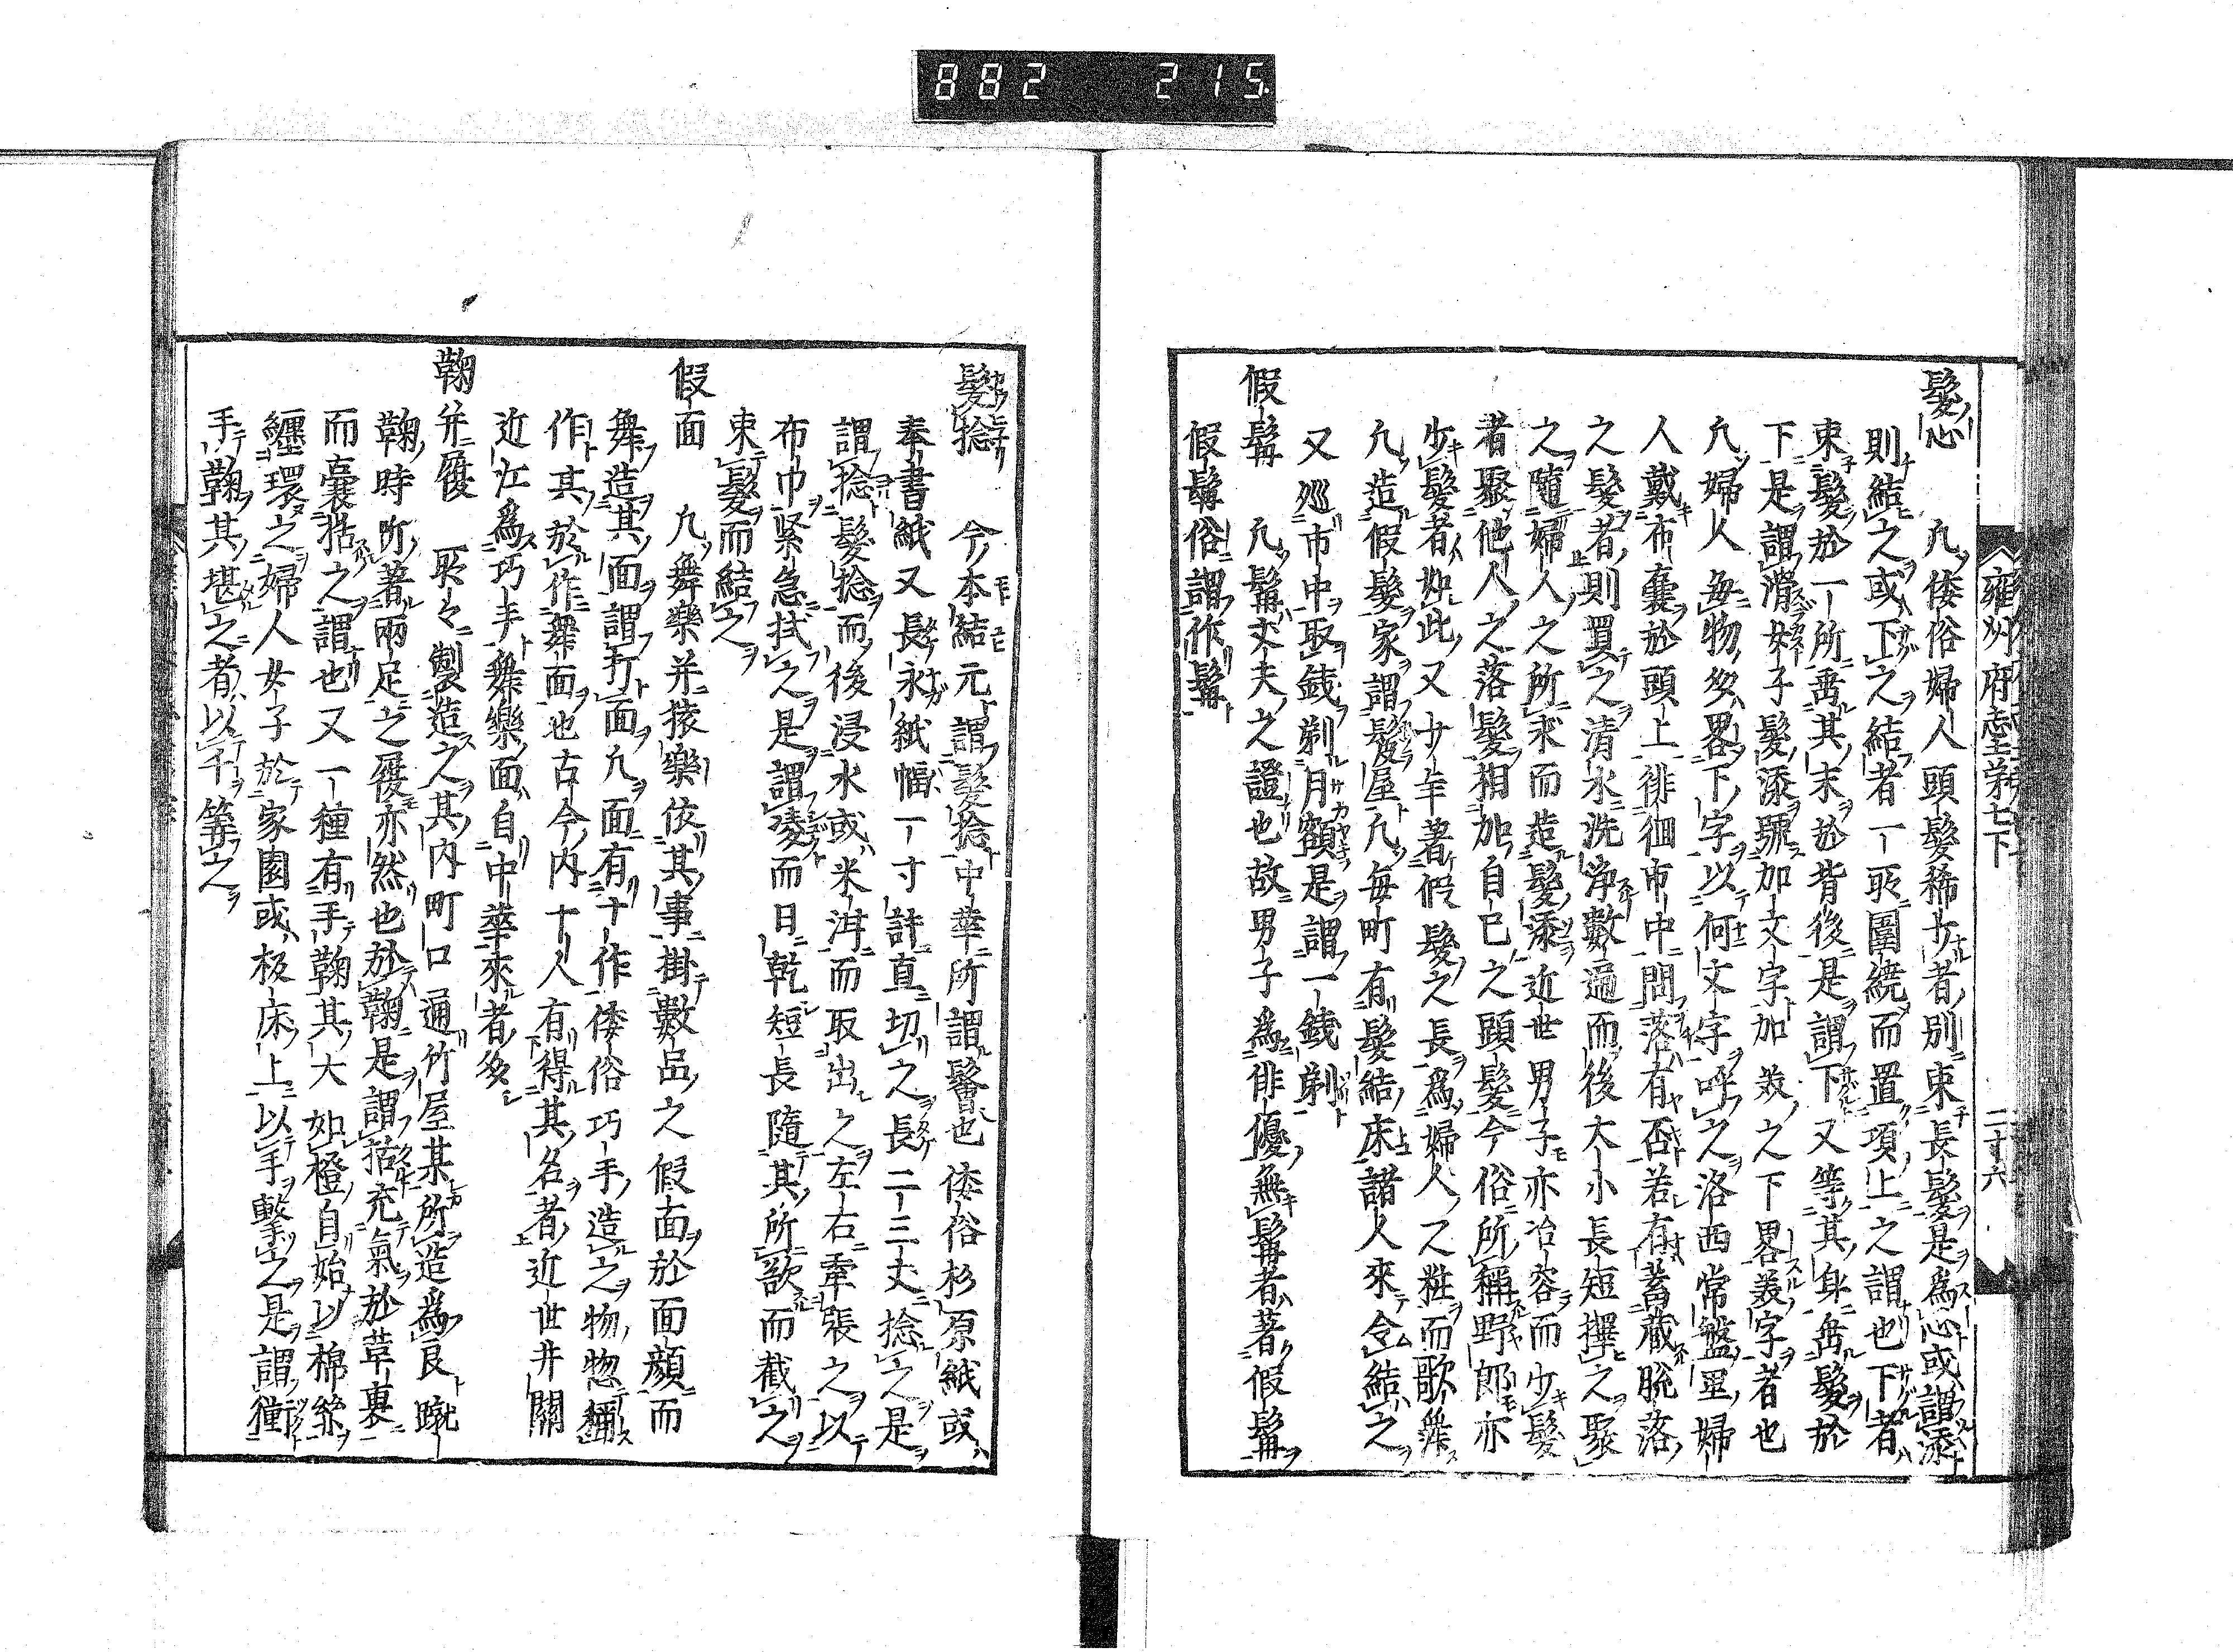 882 215
雍州府志第七下
二十六
髮心 凡倭俗婦人頭髮稀少者別束長髮是為心或謂添
則結之或下之結者一匝圍繞而置項上之謂也下者
束髮於一所垂其末於背後是謂下又等其身垂髮於
下是謂滑女子髮添號加文字加美之下畧美字者也
凡婦人每物多畧下字以何文字呼之洛西常盤里婦
人戴布囊於頭上徘徊市中問落有否若有蓄藏脫落
之髮者則買之清水洗淨數遍而後大小長短撰之聚
之隨婦人之所求而造髮添近世男子亦冶容而少髮
者聚他人之落髮相加自己之頭髮今俗所稱野郎亦
少髮者如此又少年著假髮之長為婦人之粧而歌舞
凡造假髮家謂髮屋凡每町有髮結床諸人來令結之
又巡市中取錢剃月額是謂一錢剃
假髯 凡髯丈夫之證也故男子為俳優無髯者著假髯
假髯俗謂作髯
髮捻 今本結元謂髮捻中華所謂鬠也倭俗杉原紙或
奉書紙又長永紙幅一寸許直切之長二三丈捻之是
謂捻髮捻而後浸水或米泔而取出之左右牽張之以
布巾緊急拭之是謂凌而日乾短長隨其所欲而截之
束髮而結之
假面 凡舞樂并猿樂依其事掛數品之假面於面顏而
舞造其面謂打面凡面有十作倭俗巧手造之物惣稱
作其於作舞面也古今內十人有得其名者近世井關
近江為巧手舞樂面自中華來者多
鞠并履 處々製造之其內町口通竹屋某所造為良蹴
鞠時所著兩足之履亦然也於鞠是謂括充氣於革裏
而囊括之謂也又一種有手鞠其大如橙自始以棉絲
纏環之婦人女子於家園或板床上以手擊之是謂衝
手鞠其堪之者以千筭之